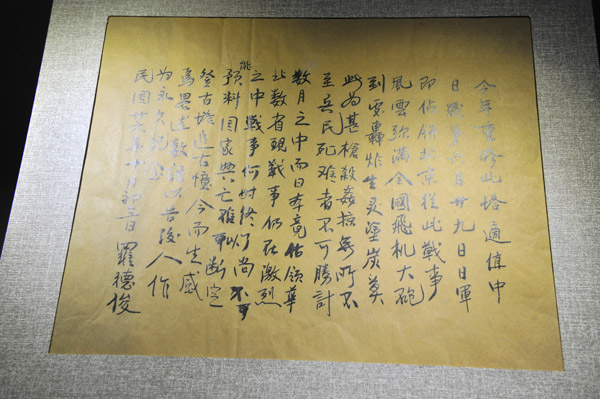 今年重修此塔適值中
日戰事六月廿九日日軍
即佔領北京從此戰事
風雲弥滿全國飛机大砲
到處轟炸生灵塗炭莫
此為甚槍殺姦掠無所不
至兵民死难者不可勝計
數月之中而日本竟佔領華
北數省現戰事仍在激烈
之中戰事何時終了尚不可
能預料國家興亡难以斷定
登古塔追古憶今而生感
焉畧述數語以告後人作
為永久紀念
民國廿六年十月初 羅德俊